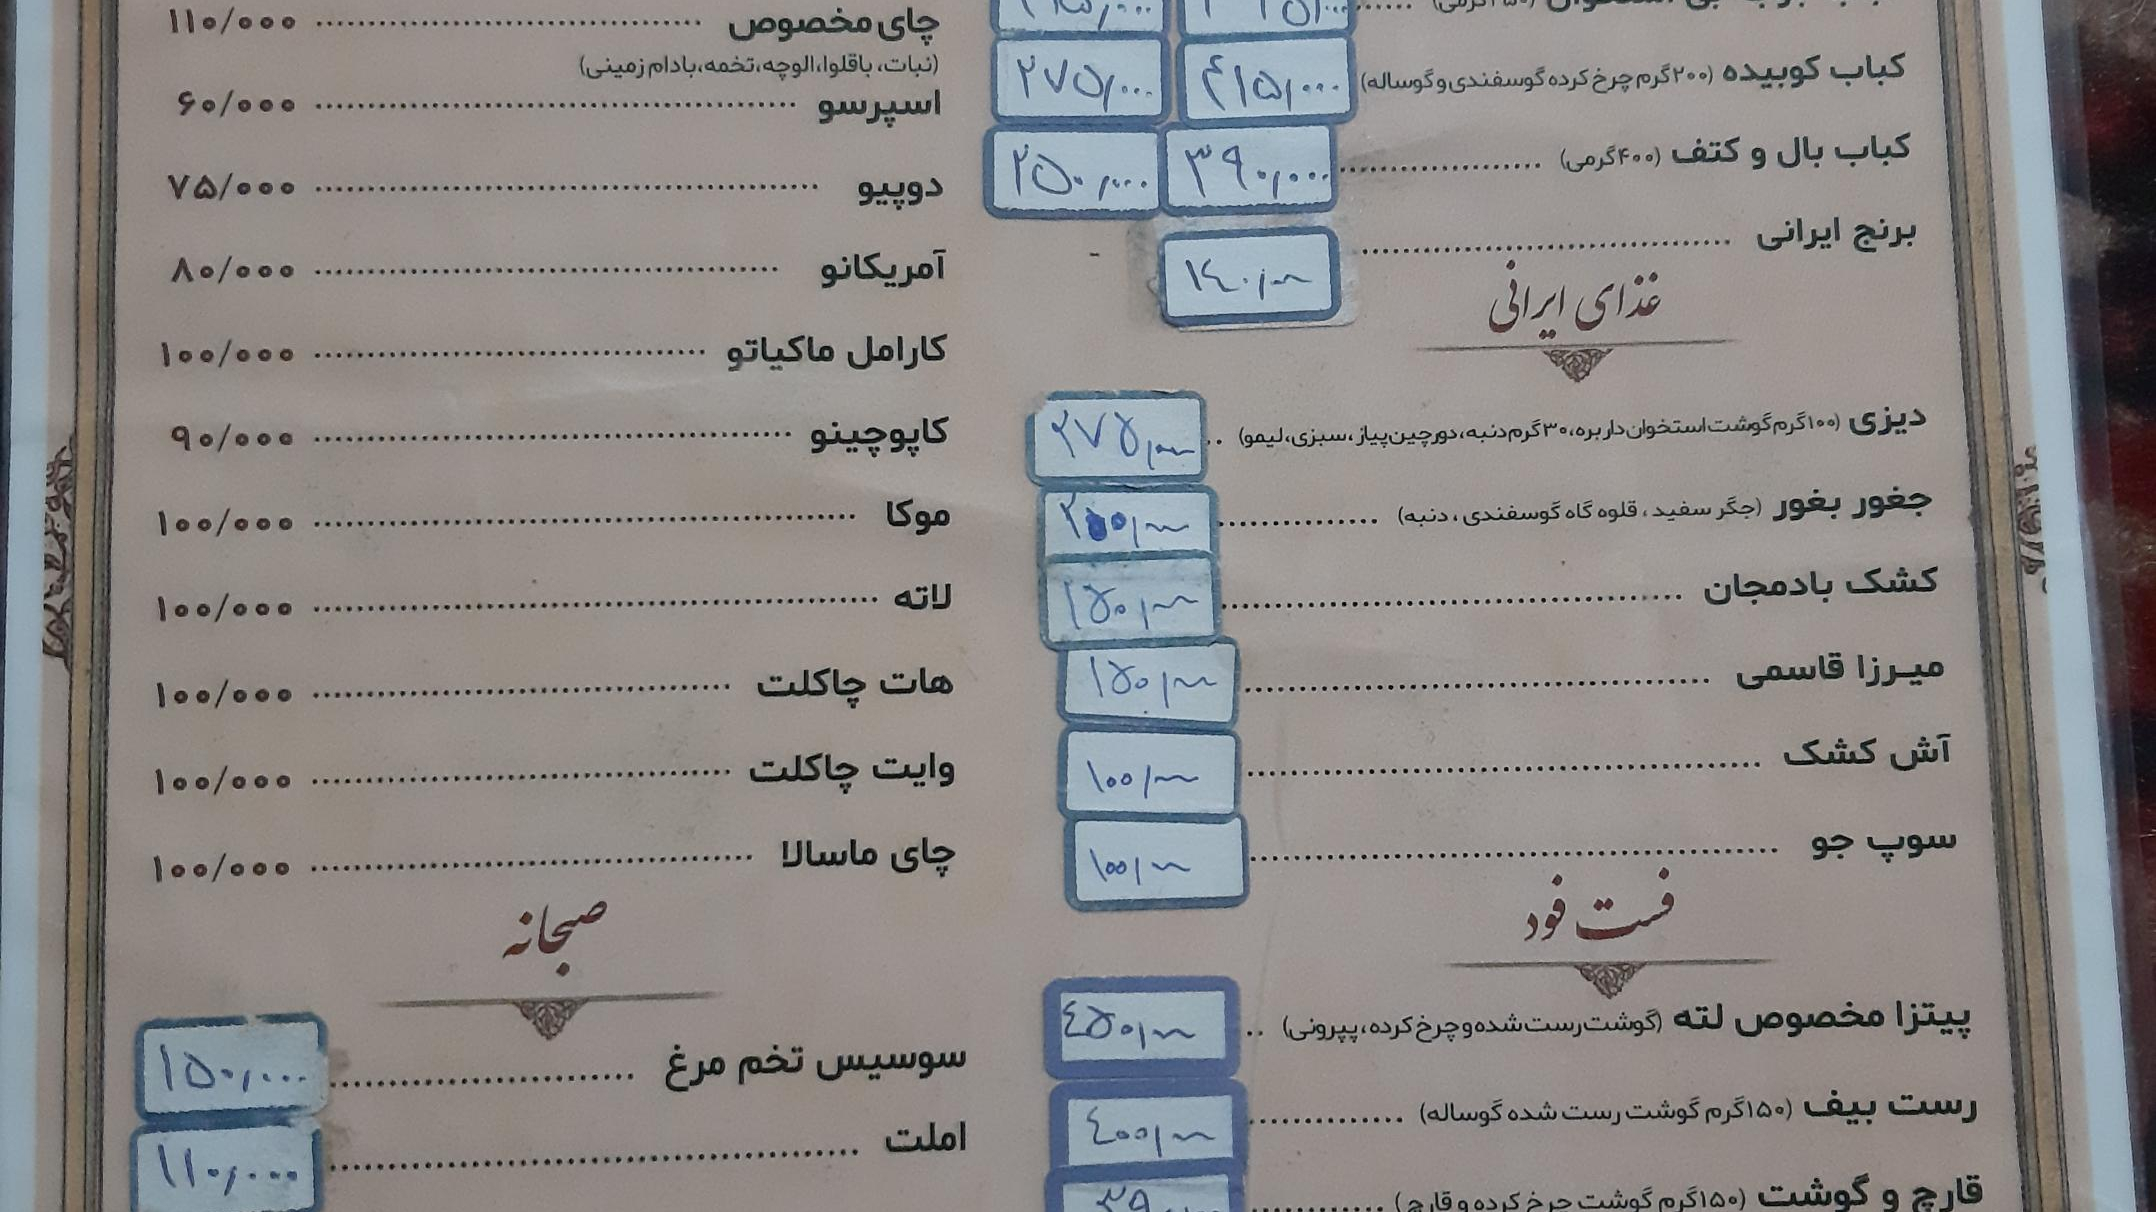 کباب کوبیده (۲۰۰گرم چرخ کرده گوسفندی و گوساله) ۴۱۵٫۰۰۰ ۲۷۵٫۰۰۰
کباب بال و کتف (۴۰۰گرمی) ........ ۳۹۰٫۰۰۰ ۲۵۰٫۰۰۰
برنج ایرانی ........ ۱۴۰٫۰۰۰
غذای ایرانی
دیزی (۱۰۰گرم گوشت استخوان دار بره، ۳۰گرم دنبه، دورچین پیاز، سبزی، لیمو) .. ۲۷۵٫۰۰۰
جغور بغور (جگر سفید ، قلوه گاه گوسفندی ، دنبه) ........
کشک بادمجان ........ ۱۵۰٫۰۰۰
میرزا قاسمی ........ ۱۵۰٫۰۰۰
آش کشک ........ ۱۰۰٫۰۰۰
سوپ جو ........ ۱۰۰٫۰۰۰
فست فود
پیتزا مخصوص لته (گوشت رست شده و چرخ کرده، پپرونی) .. ۴۵۰٫۰۰۰
رست بیف (۱۵۰گرم گوشت رست شده گوساله) ........ ۴۰۰٫۰۰۰
قارچ و گوشت (۱۵۰گرم گوشت چرخ کرده و قارچ) ........
چای مخصوص ........ ۱۱۰/۰۰۰
(نبات، باقلوا، الوچه، تخمه، بادام زمینی)
اسپرسو ........ ۶۰/۰۰۰
دوپیو ........ ۷۵/۰۰۰
آمریکانو ........ ۸۰/۰۰۰
کارامل ماکیاتو ........ ۱۰۰/۰۰۰
کاپوچینو ........ ۹۰/۰۰۰
موکا ........ ۱۰۰/۰۰۰
لاته ........ ۱۰۰/۰۰۰
هات چاکلت ........ ۱۰۰/۰۰۰
وایت چاکلت ........ ۱۰۰/۰۰۰
چای ماسالا ........ ۱۰۰/۰۰۰
صبحانه
سوسیس تخم مرغ ........ ۱۵۰٫۰۰۰
املت ........ ۱۱۰٫۰۰۰